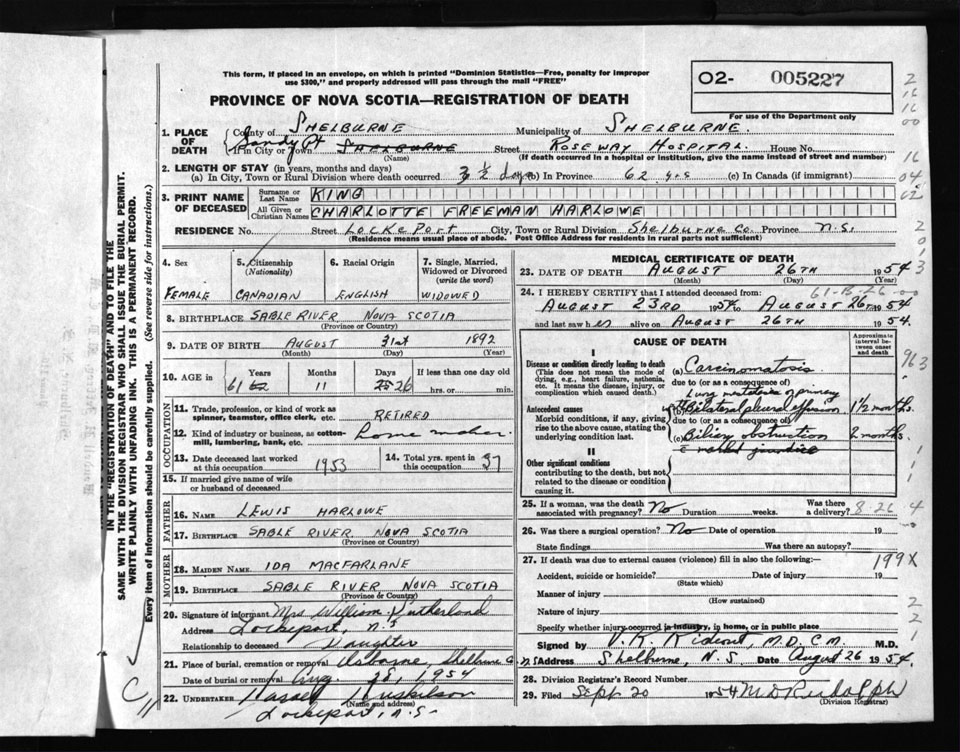 This form, if placed in an envelope, on which is printed "Dominion Statistics—Free, penalty for improper
use $300," and properly addressed will pass through the mail "FREE"
02- 005227
PROVINCE OF NOVA SCOTIA—REGISTRATION OF DEATH
For use of the Department only
1. PLACE OF DEATH County of SHELBURNE Municipality of SHELBURNE.
If in City or Town Sandy Pt SHELBURNE Street ROSEWAY HOSPITAL. House No.
(Name) (If death occurred in a hospital or institution, give the name instead of street and number)
2. LENGTH OF STAY (in years, months and days)
(a) In City, Town or Rural Division where death occurred 3 1/2 days (b) In Province 62 yrs (c) In Canada (if immigrant)
3. PRINT NAME OF DECEASED Surname or Last Name KING
All Given or Christian Names CHARLOTTE FREEMAN HARLOWE
RESIDENCE No. Street LOCKEPORT City, Town or Rural Division Shelburne Co. Province N.S.
(Residence means usual place of abode. Post Office Address for residents in rural parts not sufficient)
4. Sex FEMALE
5. Citizenship (Nationality) CANADIAN
6. Racial Origin ENGLISH
7. Single, Married, Widowed or Divorced (write the word) WIDOWED
8. BIRTHPLACE SABLE RIVER NOVA SCOTIA
(Province or Country)
9. DATE OF BIRTH AUGUST 31st 1892
(Month) (Day) (Year)
10. AGE in Years Months Days If less than one day old
61 62 11 25 26 hrs. or min.
OCCUPATION
11. Trade, profession, or kind of work as spinner, teamster, office clerk, etc. RETIRED
12. Kind of industry or business, as cotton-mill, lumbering, bank, etc. Home maker.
13. Date deceased last worked at this occupation 1953 14. Total yrs. spent in this occupation 37
15. If married give name of wife or husband of deceased
FATHER
16. NAME LEWIS HARLOWE
17. BIRTHPLACE SABLE RIVER, NOVA SCOTIA
(Province or Country)
MOTHER
18. MAIDEN NAME. IDA MACFARLANE
19. BIRTHPLACE SABLE RIVER NOVA SCOTIA
(Province or Country)
20. Signature of informant Mrs William Sutherland
Address Lockeport, N.S
Relationship to deceased Daughter
21. Place of burial, cremation or removal Osborne, Shelburne Co
Date of burial or removal Aug. 28, 1954
22. UNDERTAKER Huskilson
(Name and address)
Lockeport, N.S-
MEDICAL CERTIFICATE OF DEATH
23. DATE OF DEATH AUGUST 26TH 1954
(Month) (Day) (Year)
24. I HEREBY CERTIFY that I attended deceased from:
AUGUST 23RD 1954 to AUGUST 26TH 1954
and last saw her alive on AUGUST 26TH 1954.
CAUSE OF DEATH
Approximate interval between onset and death
I
Disease or condition directly leading to death
(This does not mean the mode of dying, e.g., heart failure, asthenia, etc. It means the disease, injury, or complication which caused death.)
(a) Carcinomatosis
due to (or as a consequence of)
Antecedent causes
Morbid conditions, if any, giving rise to the above cause, stating the underlying condition last.
Lung metastases of primary
(b) Bilateral pleural effusion 1 1/2 months.
due to (or as a consequence of)
(c) Biliary obstruction 2 months.
c marked jaundice
II
Other significant conditions
contributing to the death, but not related to the disease or condition causing it.
25. If a woman, was the death associated with pregnancy? No Duration weeks. Was there a delivery? 8-26
26. Was there a surgical operation? No Date of operation 19
State findings Was there an autopsy?
27. If death was due to external causes (violence) fill in also the following:— 199X
Accident, suicide or homicide? Date of injury 19
(State which)
Manner of injury
(How sustained)
Nature of injury
Specify whether injury occurred in industry, in home, or in public place
Signed by V. K. Rideout, M.D., C.M. M.D.
Address Shelburne, N.S. Date August 26 1954.
28. Division Registrar's Record Number
29. Filed Sept 20 1954 M D Rudolph
(Division Registrar)
IN THE "REGISTRATION OF DEATH" AND TO FILE THE
SAME WITH THE DIVISION REGISTRAR WHO SHALL ISSUE THE BURIAL PERMIT.
WRITE PLAINLY WITH UNFADING INK. THIS IS A PERMANENT RECORD.
Every item of information should be carefully supplied. (See reverse side for instructions.)